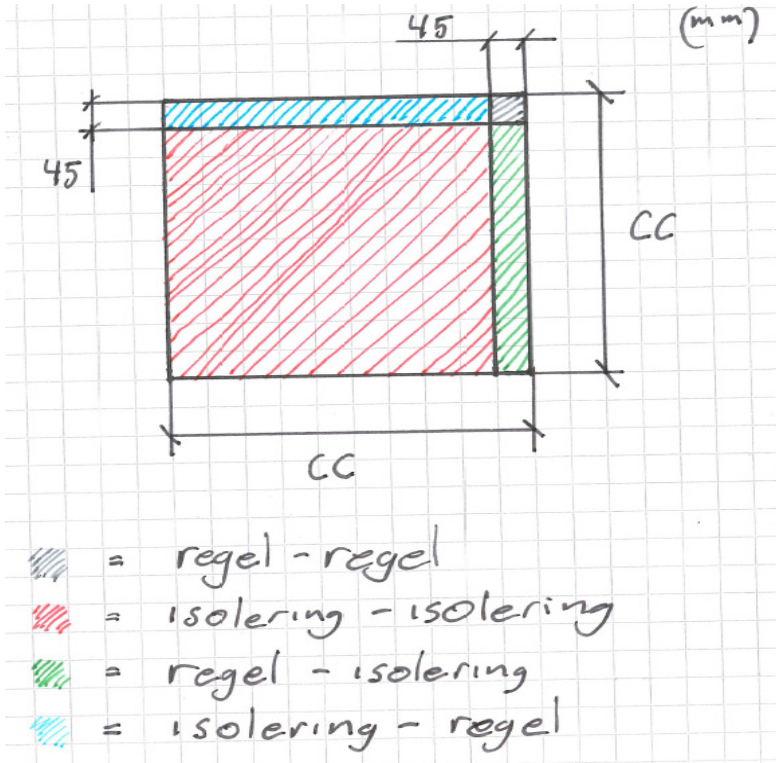 45
(mm)
45
CC
CC
= regel - regel
= isolering - isolering
= regel - isolering
= isolering - regel